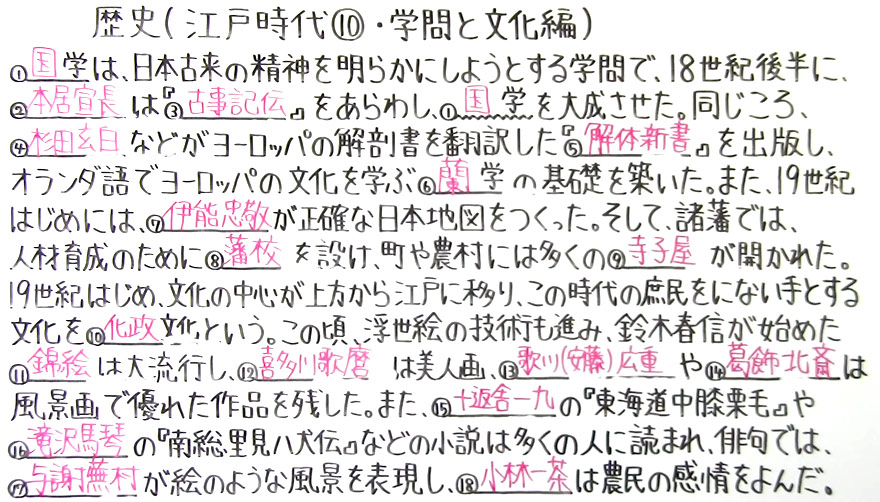 歴史(江戸時代⑩・学問と文化編)
①国学は、日本古来の精神を明らかにしようとする学問で、18世紀後半に、
②本居宣長は『③古事記伝』をあらわし、①国学を大成させた。同じころ、
④杉田玄白などがヨーロッパの解剖書を翻訳した『⑤解体新書』を出版し、
オランダ語でヨーロッパの文化を学ぶ⑥蘭学の基礎を築いた。また、19世紀
はじめには、⑦伊能忠敬が正確な日本地図をつくった。そして、諸藩では、
人材育成のために⑧藩校を設け、町や農村には多くの⑨寺子屋が開かれた。
19世紀はじめ、文化の中心が上方から江戸に移り、この時代の庶民をにない手とする
文化を⑩化政文化という。この頃、浮世絵の技術も進み、鈴木春信が始めた
⑪錦絵は大流行し、⑫喜多川歌麿は美人画、⑬歌川(安藤)広重や⑭葛飾北斎は
風景画で優れた作品を残した。また、⑮十返舎一九の『東海道中膝栗毛』や
⑯滝沢馬琴の『南総里見八犬伝』などの小説は多くの人に読まれ、俳句では、
⑰与謝蕪村が絵のような風景を表現し、⑱小林一茶は農民の感情をよんだ。